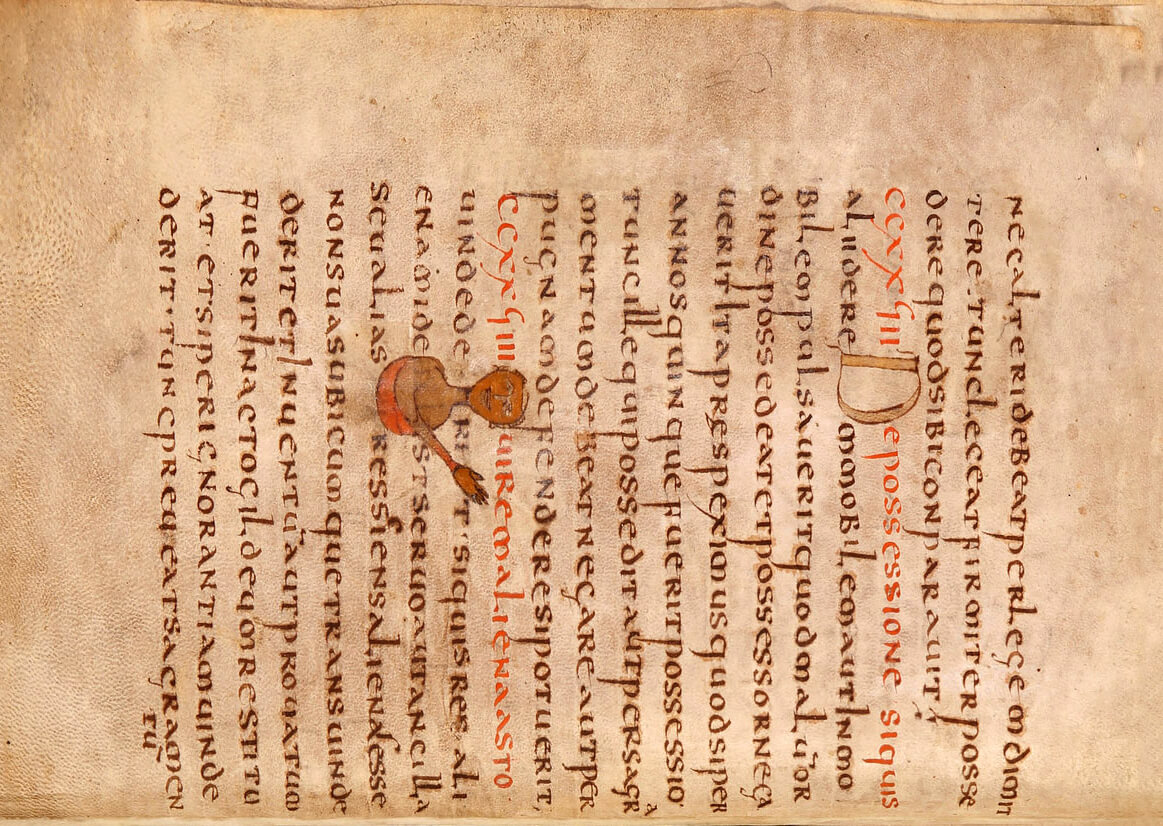 nec alteri debeat per legem dimit
tere . tunc leceat firmiter posse
dere quod sibi conparauit ;
CCXXUIII De possessione si quis
alii de re mmobilem aut Inmo
bilem pulsauerit quod malū or
dine possedeat et possessor nega
uerit Ita prespeximus quod si per
annos quinque fuerit possessio
tunc ille qui possedit aut per sagra
mentum debeat negare aut per
pugnam defendere si potuerit,
CCXXUIIII ui rem aliena asto
uindede si quis res ali
enam ide st seruo aut ancilla
seu alias res sciens alienas esse
non suas ubicumque transuinde
derit et Inuentū aut prouatum
fuerit In actogild eum restitu
at · et si per ignorantiam uinde
derit · tunc preueat sagramen
tū